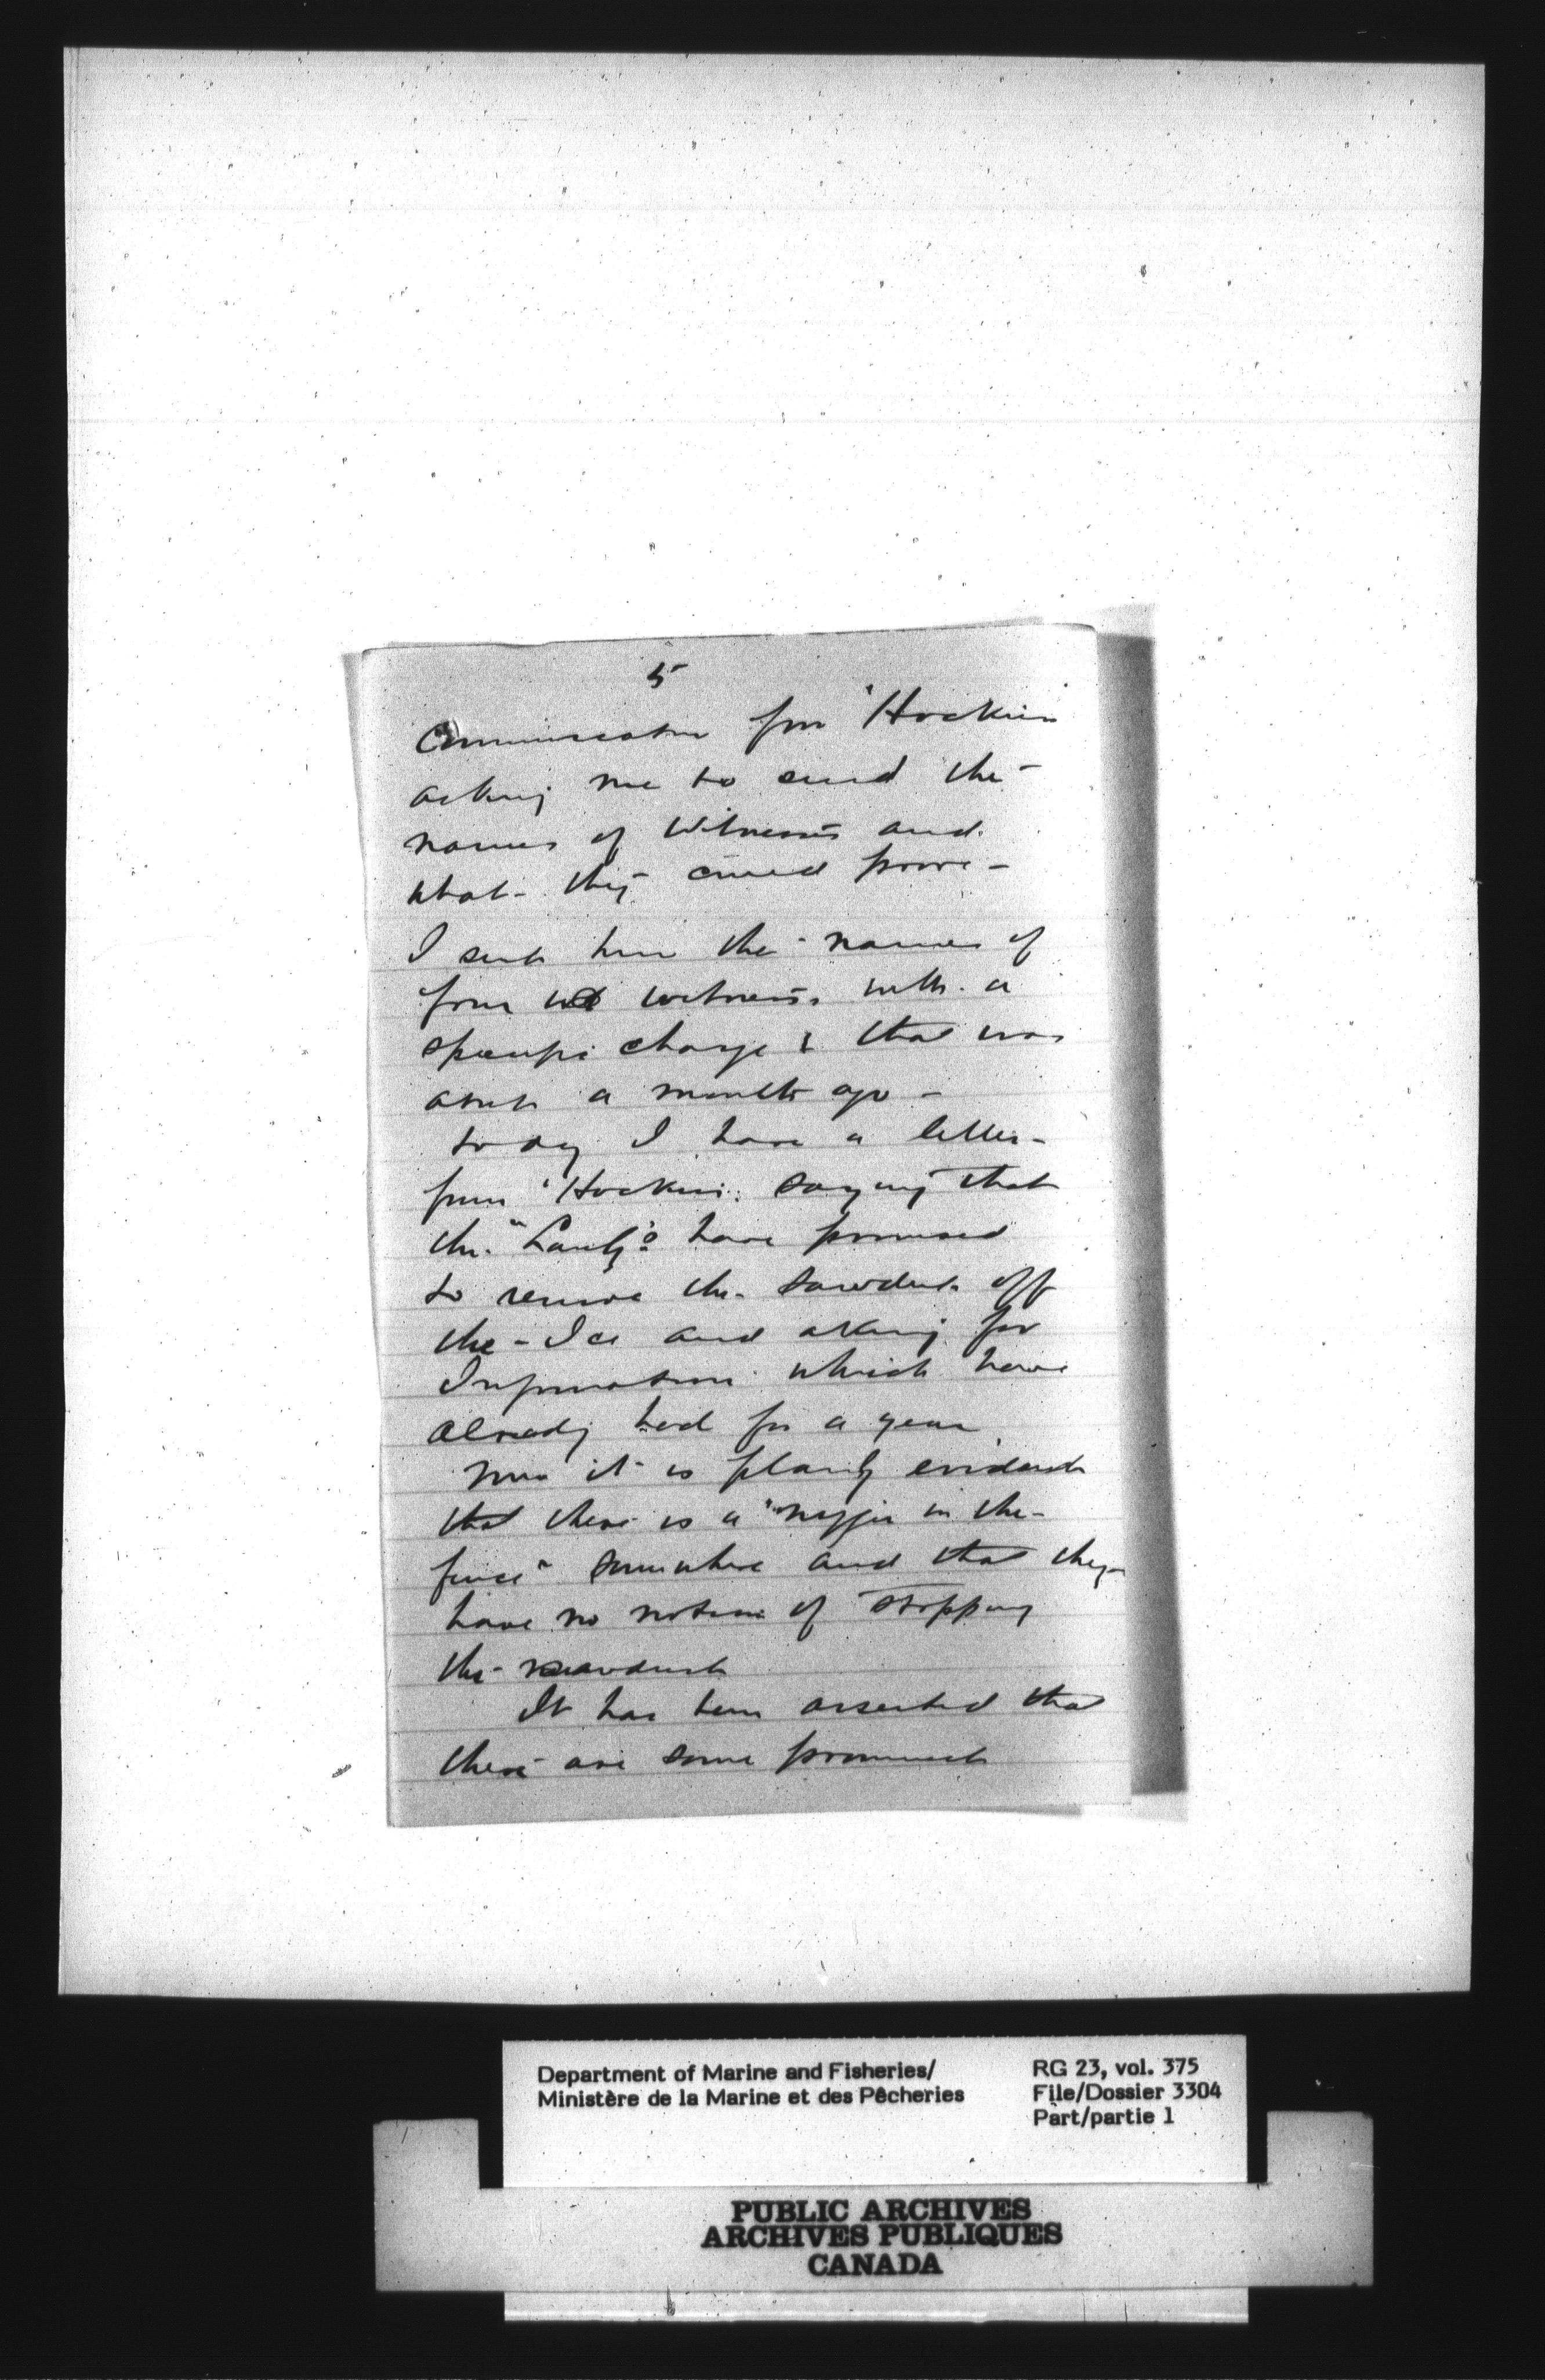 5
Communication from Hockin
asking me to send the
names of Witnesses and
what they could prove -
I sent him the names of
four witnesses with a
specific charge & that was
about a month ago -
to day I have a letter
from "Hockin" saying that
the have promised
to remove the sawdust off
the Ice and asking for
Information which have
already had for a year
Now it is plainly evident
that there is a "nigger in the
fence" somewhere and that they
have no notion of stopping
the sawdust
It has been asserted that
there are some prominent
Department of Marine and Fisheries/
Ministère de la Marine et des Pêcheries
RG 23, vol. 375
File/Dossier 3304
Part/partie 1
PUBLIC ARCHIVES
ARCHIVES PUBLIQUES
CANADA